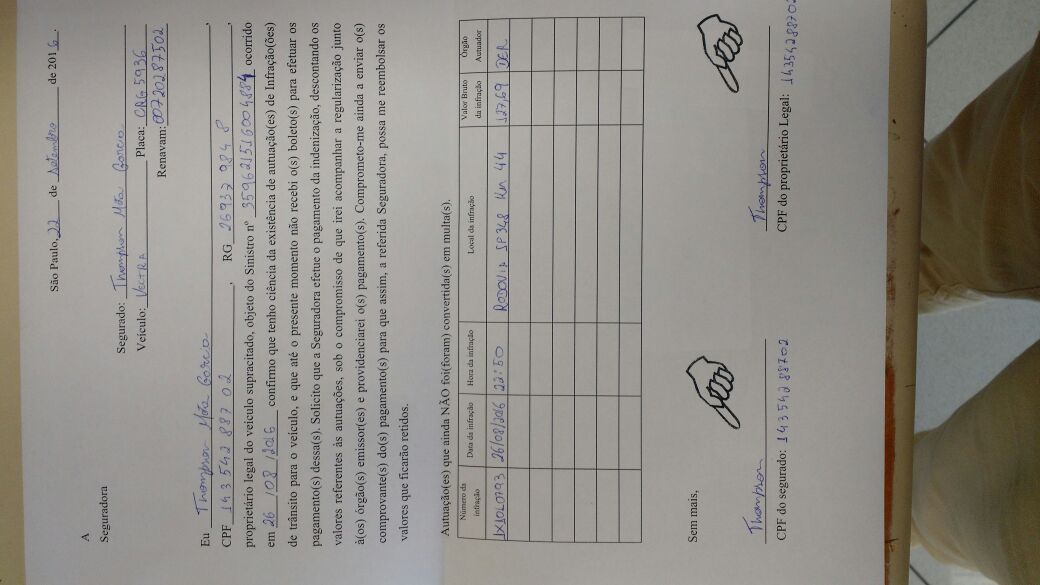 São Paulo, 22 de setembro de 2016.
A
Seguradora
Segurado: Thompson Mota Garcia
Veículo: VECTRA Placa: CRG 5936
Renavam: 00720287502
Eu Thompson Mota Garcia,
CPF 143 542 887 02, RG 26937 984 8,
proprietário legal do veículo supracitado, objeto do Sinistro nº 359621516004884 ocorrido
em 26 /08 /2016 confirmo que tenho ciência da existência de autuação(es) de Infração(ões)
de trânsito para o veículo, e que até o presente momento não recebi o(s) boleto(s) para efetuar os
pagamento(s) dessa(s). Solicito que a Seguradora efetue o pagamento da indenização, descontando os
valores referentes às autuações, sob o compromisso de que irei acompanhar a regularização junto
à(os) órgão(s) emissor(es) e providenciarei o(s) pagamento(s). Comprometo-me ainda a enviar o(s)
comprovante(s) do(s) pagamento(s) para que assim, a referida Seguradora, possa me reembolsar os
valores que ficarão retidos.
Autuação(es) que ainda NÃO foi(foram) convertida(s) em multa(s).
Número da infração Data da infração Hora da infração Local da infração Valor Bruto da infração Órgão Autuador
1X10L0793 26/08/2016 22:50 RODOVIA SP348 Km 44 127,69 DER
Sem mais,
Thompson Thompson
CPF do segurado: 14354288702 CPF do proprietário Legal: 14354288702